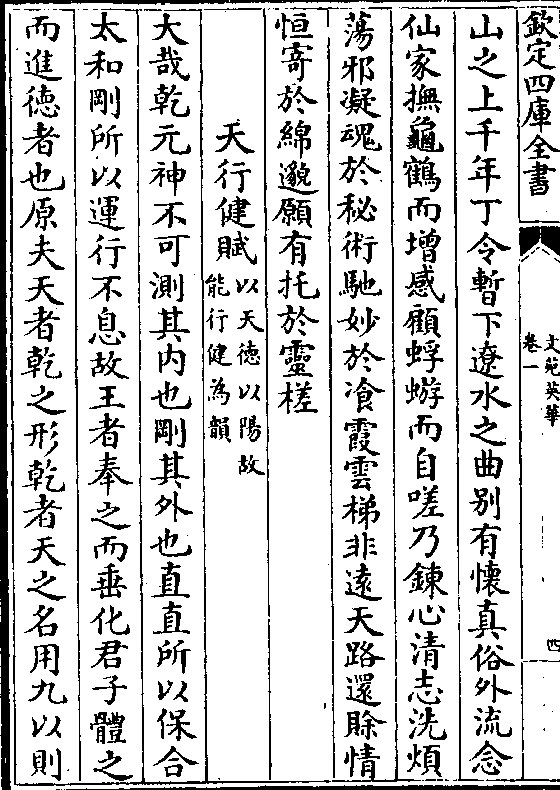 欽定四庫全書
文苑英華
卷一
四
山之上千年丁令暫下遼水之曲别有懷真俗外流念
仙家撫龜鶴而增感顧蜉蝣而自嗟乃錬心清志洗煩
蕩邪凝魂於秘術馳妙於飡霞雲梯非遠天路還賖情
恒寄於綿邈願有托於靈槎
天行健賦以天德以陽故
能行健為韻
大哉乾元神不可測其内也剛其外也直直所以保合
太和剛所以運行不息故王者奉之而垂化君子體之
而進徳者也原夫天者乾之形乾者天之名用九以則